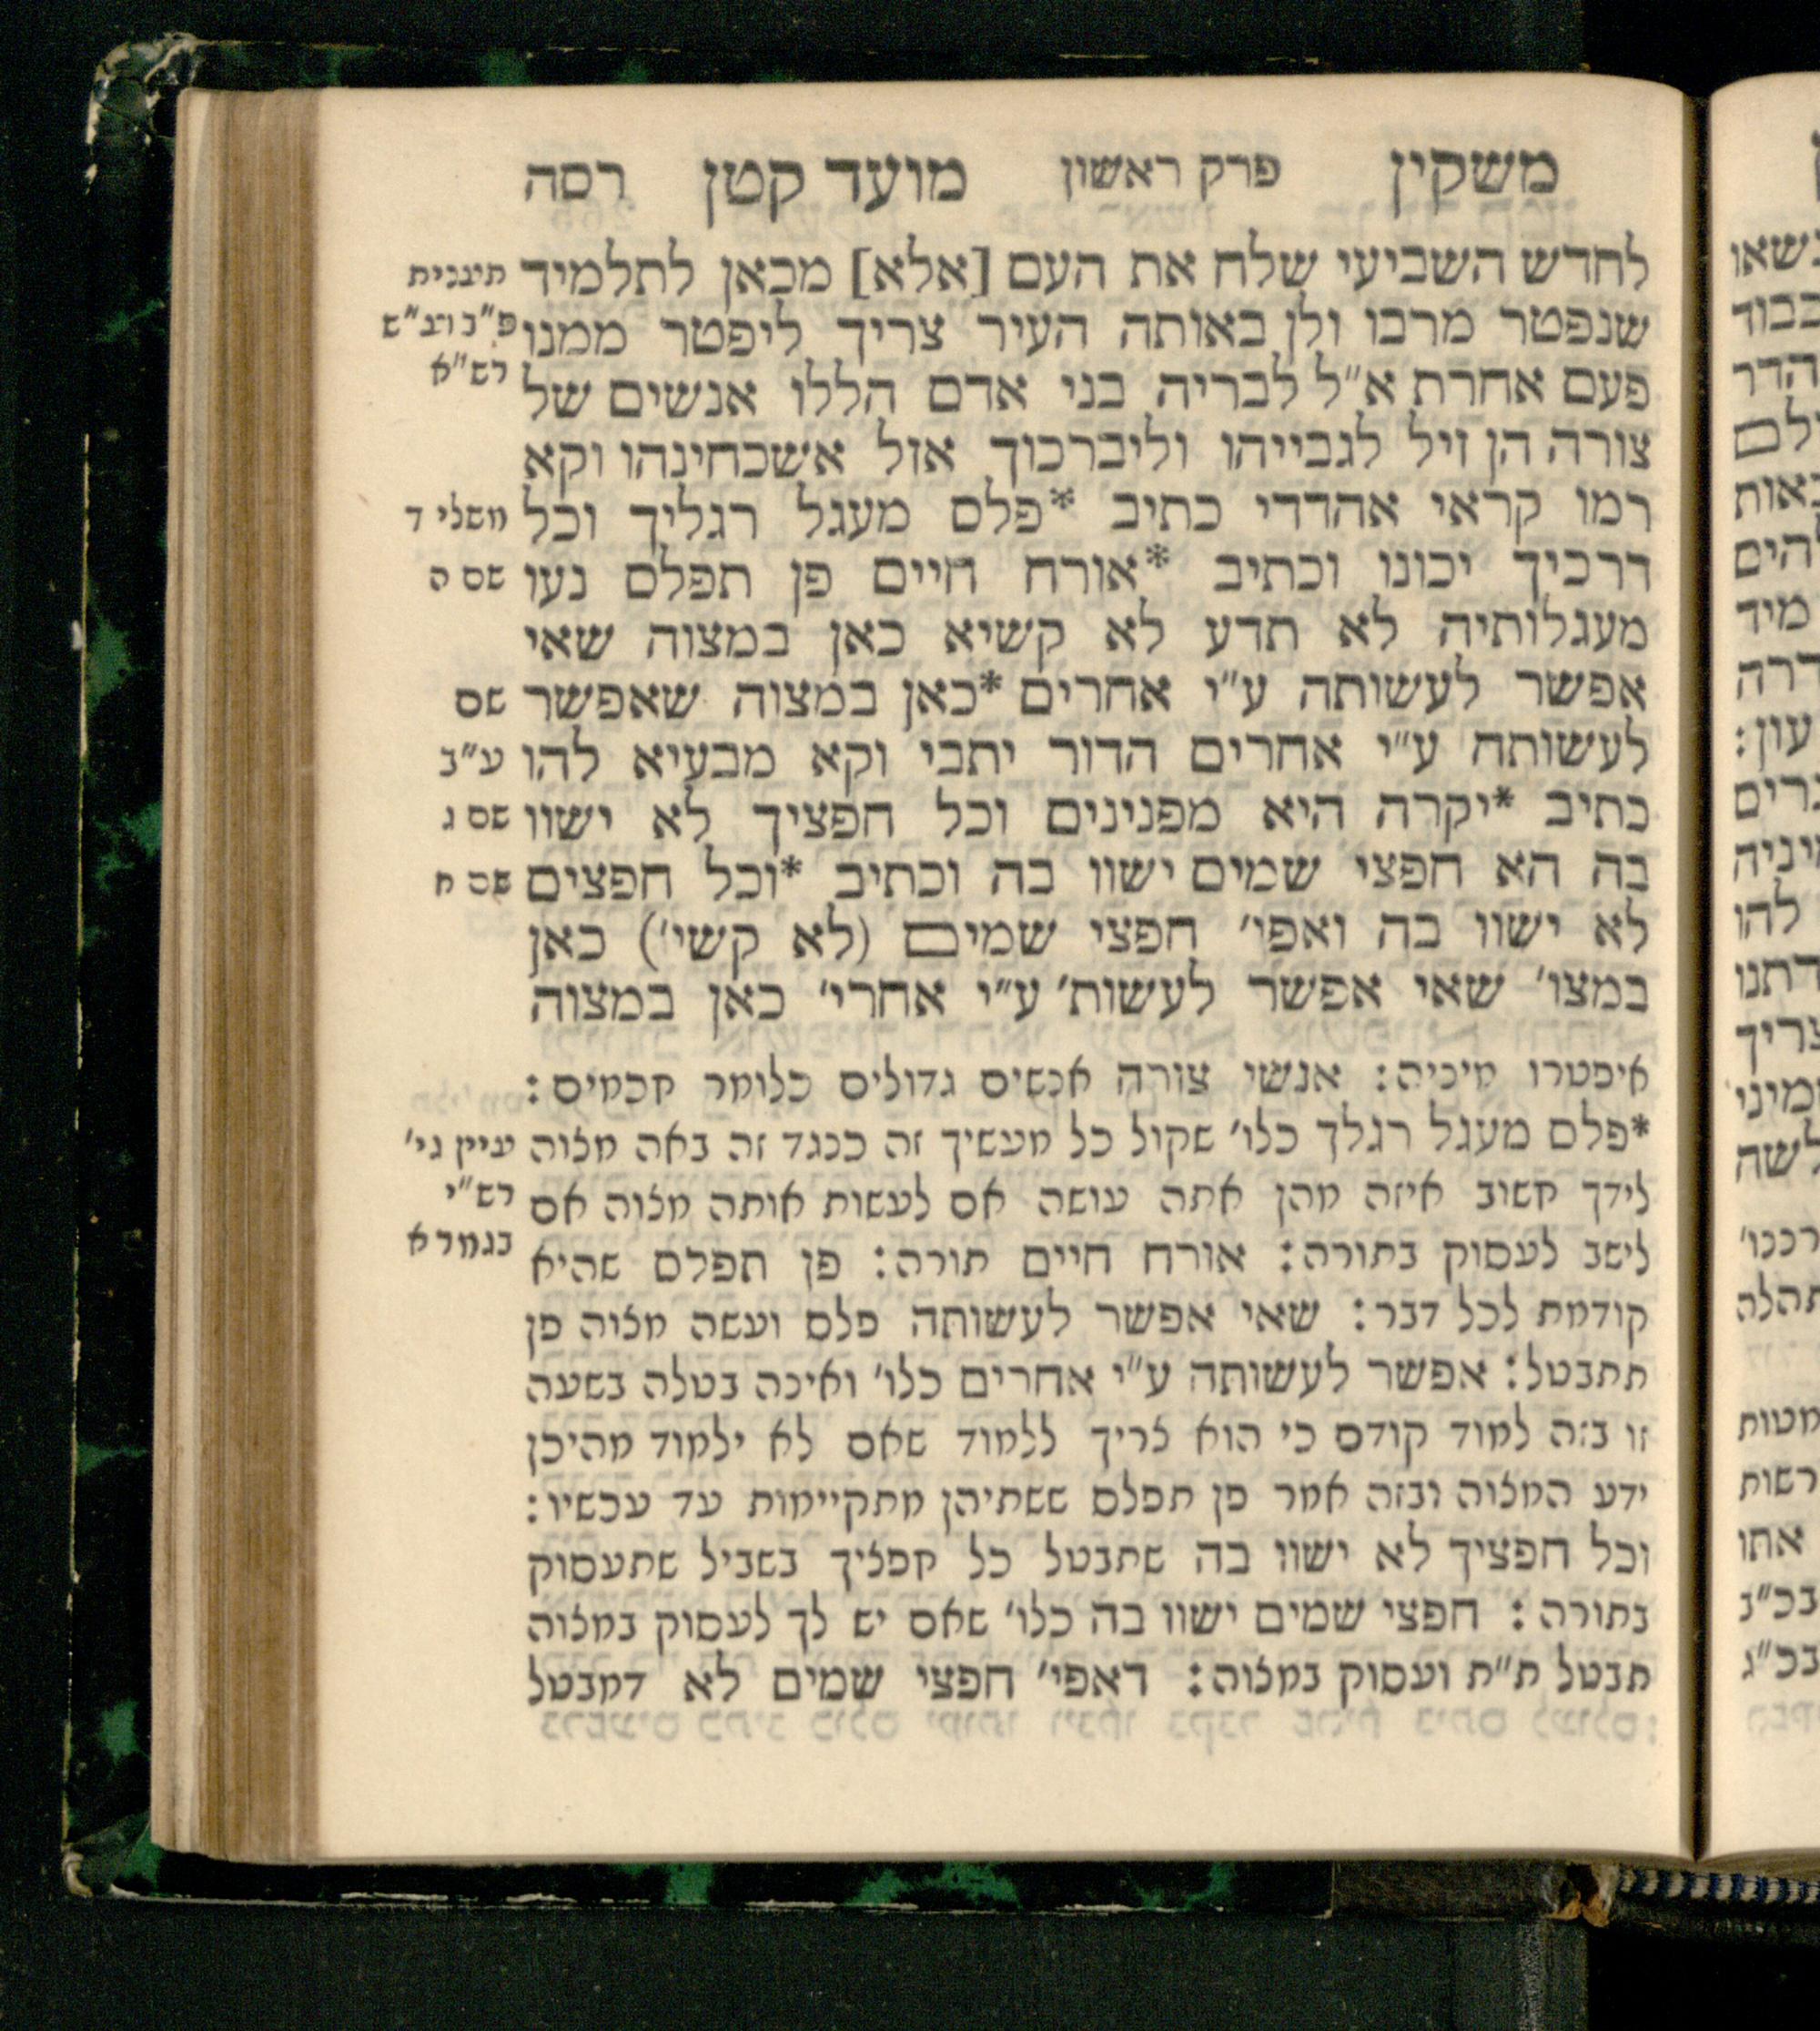 משקין פרק ראשון מועד קטן רסה
לחדש השביעי שלח את העם [אלא] מכאן לתלמיד
שנפטר מרבו ולן באותה העיר צריך ליפטר ממנו
פעם אחרת א״ל לבריה בני אדם הללו אנשים של
צורה הן זיל לגבייהו וליברכוך אזל אשכחינהו וקא
רמו קראי אהדדי כתיב *פלס מעגל רגליך וכל
דרכיך יכונו וכתיב *אורח חיים פן תפלס נעו
מעגלותיה לא תדע לא קשיא כאן במצוה שאי
אפשר לעשותה ע״י אחרים *כאן במצוה שאפשר
לעשותה ע״י אחרים הדור יתבי וקא מבעיא להו
כתיב *יקרה היא מפנינים וכל חפציך לא ישוו
בה הא חפצי שמים ישוו בה וכתיב *וכל חפצים
לא ישוו בה ואפי׳ חפצי שמים (לא קשי׳) כאן
במצו׳ שאי אפשר לעשות׳ ע״י אחרי׳ כאן במצוה
משלי ד
שם ה
שם
ע״ב
שם ג
שם ח
איפטרו מיניה: אנשי צורה אנשים גדולים כלומר חכמים:
*פלס מעגל רגלך כלו׳ שקול כל מעשיך זה כנגד זה באה מצוה
לידך חשוב איזה מהן אתה עושה אם לעשות אותה מצוה אם
לישב לעסוק בתורה: אורח חיים תורה: פן תפלס שהיא
קודמת לכל דבר: שאי אפשר לעשותה פלס ועשה מצוה פן
תתבטל: אפשר לעשותה ע״י אחרים כלו׳ ואינה בטלה בשעה
זו בזה למוד קודם כי הוא צריך ללמוד שאם לא ילמוד מהיכן
ידע המצוה ובזה אמר פן תפלס ששתיהן מתקיימות עד עכשיו:
וכל חפציך לא ישוו בה שתבטל כל חפציך בשביל שתעסוק
בתורה: חפצי שמים ישוו בה כלו׳ שאם יש לך לעסוק במצוה
תבטל ת״ת ועסוק במצוה: דאפי׳ חפצי שמים לא דמבטל
עיין גי׳
רש״י
בגמרא